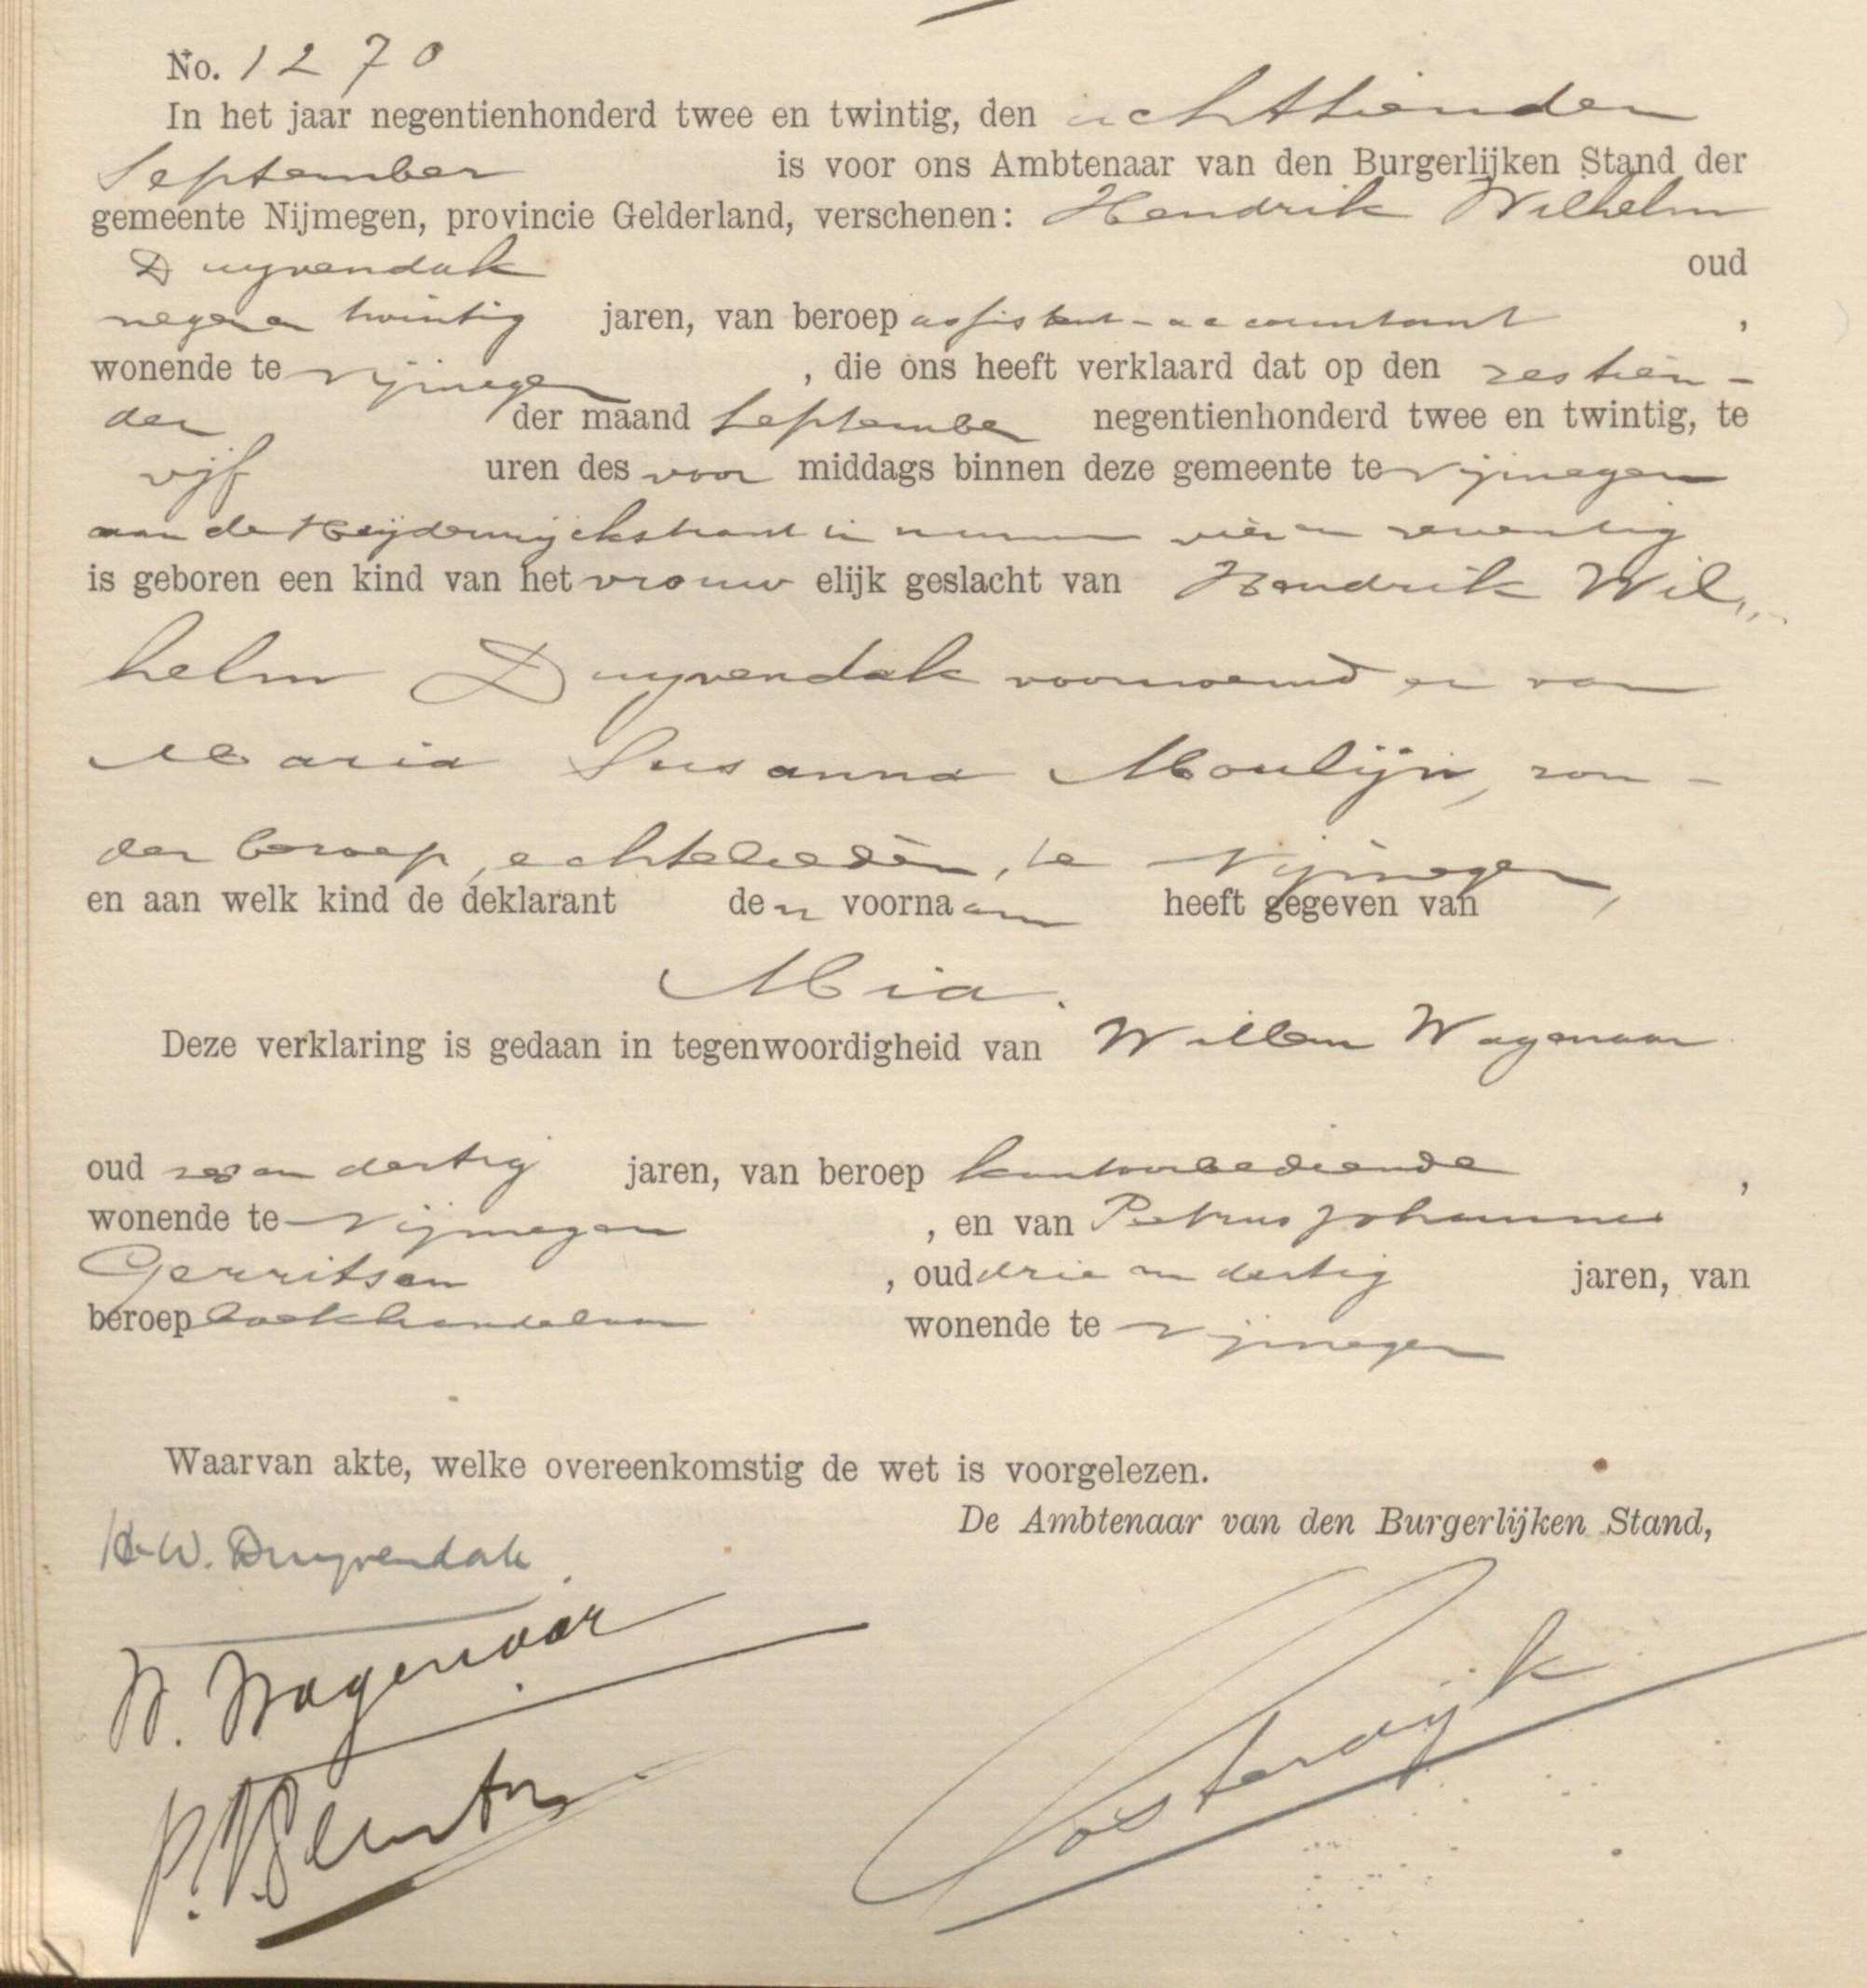 No. 1270
In het jaar negentienhonderd twee en twintig, den achttienden
September is voor ons Ambtenaar van den Burgerlijken Stand der
gemeente Nijmegen, provincie Gelderland, verschenen: Hendrik Wilhelm
Duyvendak oud
negen en twintig jaren, van beroep assistent-accountant,
wonende te Nijmegen, die ons heeft verklaard dat op den zestien-
den der maand September negentienhonderd twee en twintig, te
vijf uren des voor middags binnen deze gemeente te Nijmegen
aan de Heijdenrijckstraat in nummer vier en zeventig
is geboren een kind van het vrouwelijk geslacht van Hendrik Wil„
helm Duyvendak voornoemd en van
Maria Susanna Moulijn, zon-
der beroep, echtelieden, te Nijmegen,
en aan welk kind de deklarant den voornaam heeft gegeven van
Mia.
Deze verklaring is gedaan in tegenwoordigheid van Willem Wagenaar
oud zes en dertig jaren, van beroep kantoorbediende,
wonende te Nijmegen, en van Petrus Johannes
Gerritsen, oud drie en dertig jaren, van
beroep boekhandelaar wonende te Nijmegen
Waarvan akte, welke overeenkomstig de wet is voorgelezen.
De Ambtenaar van den Burgerlijken Stand,
H.W. Duyvendak
W. Wagenaar